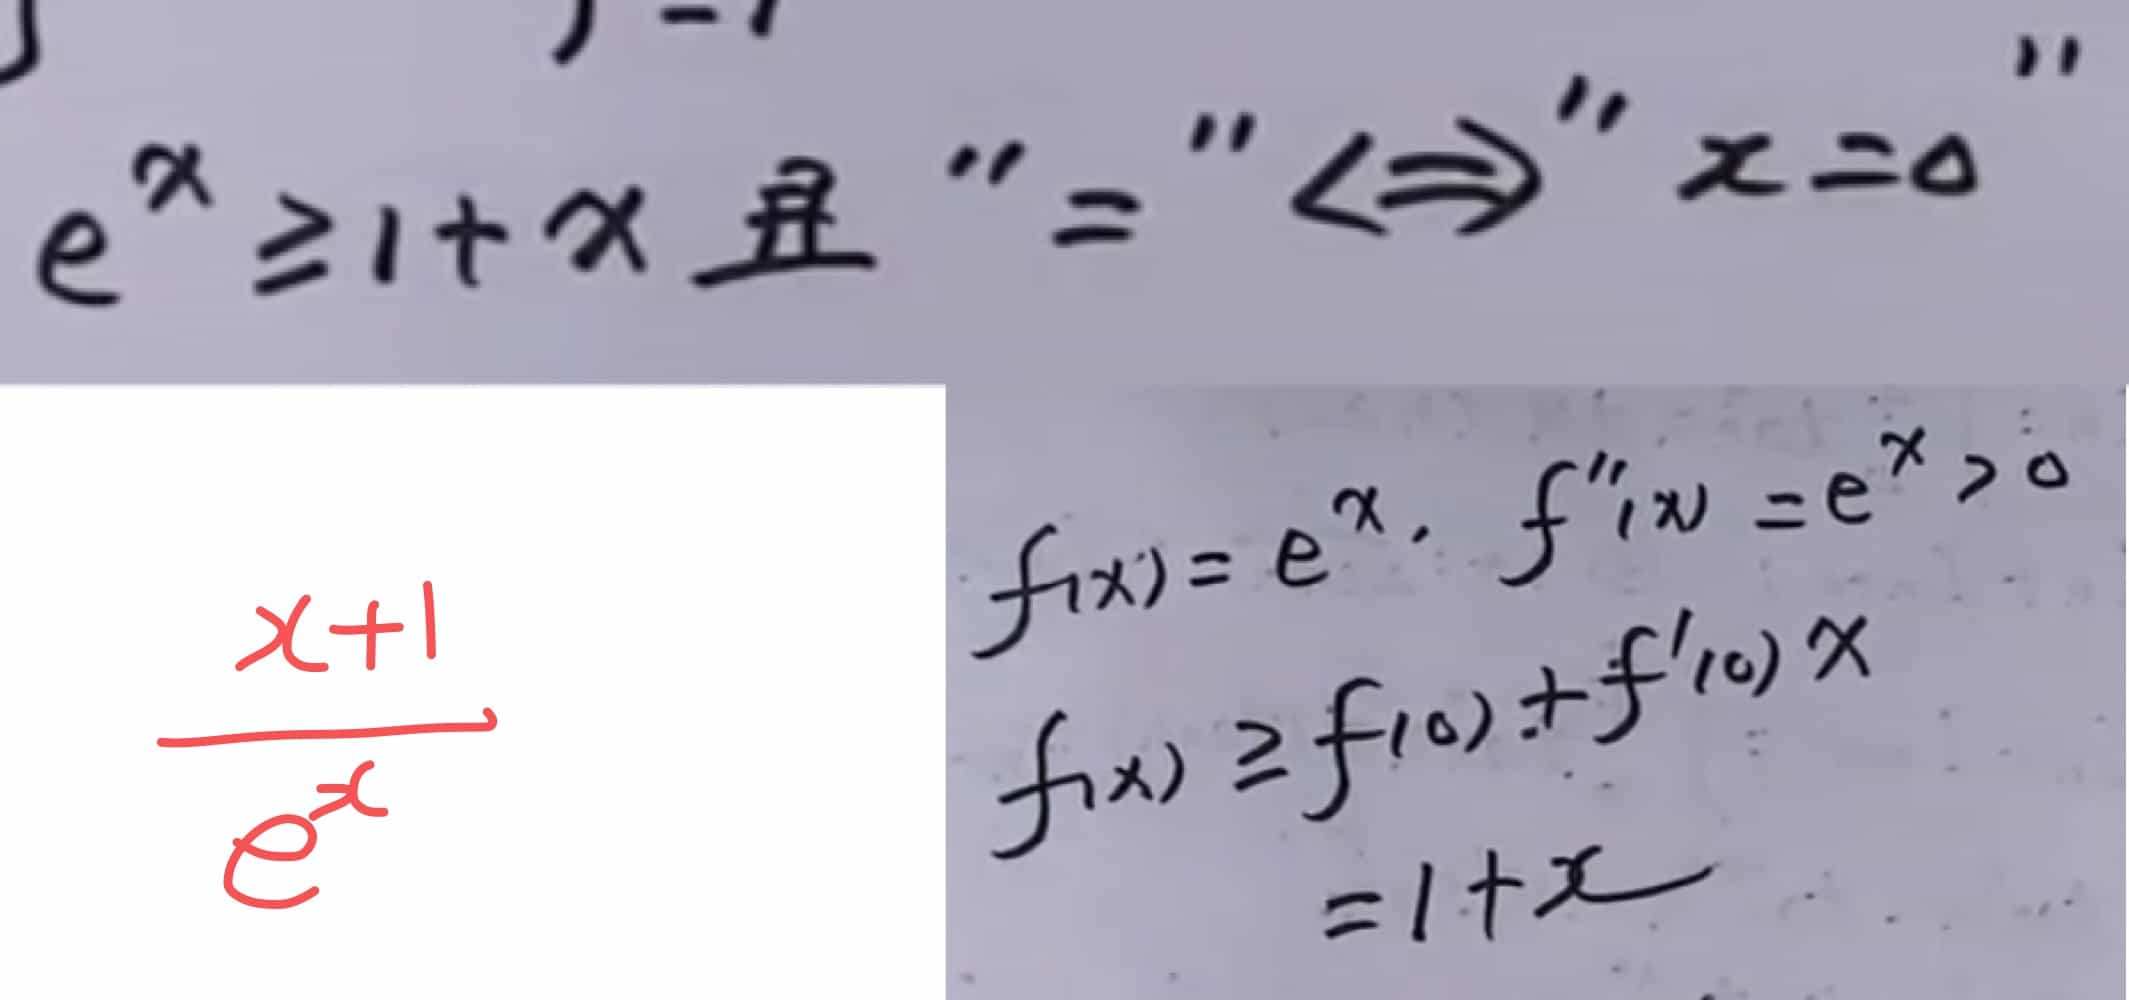 e^x ≥ 1 + x 且 "=" <=> "x = 0"
x+1
e^x
f(x) = e^x. f''(x) = e^x > 0
f(x) ≥ f(0) + f'(0) x
= 1 + x